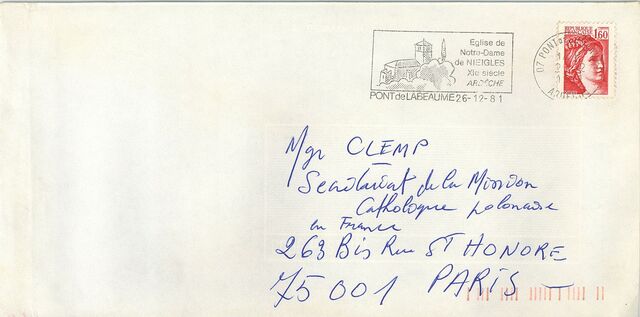 Eglise de
Notre-Dame
de NIEIGLES
XIe siècle
ARDÈCHE
PONT de LABEAUME 26-12-81
07 PONT de
REPUBLIQUE
FRANCAISE
1,60
Mgr CLEMP
Secrétariat de la Mission
Catholique polonaise
en France
263 Bis Rue ST HONORE
75001 PARIS